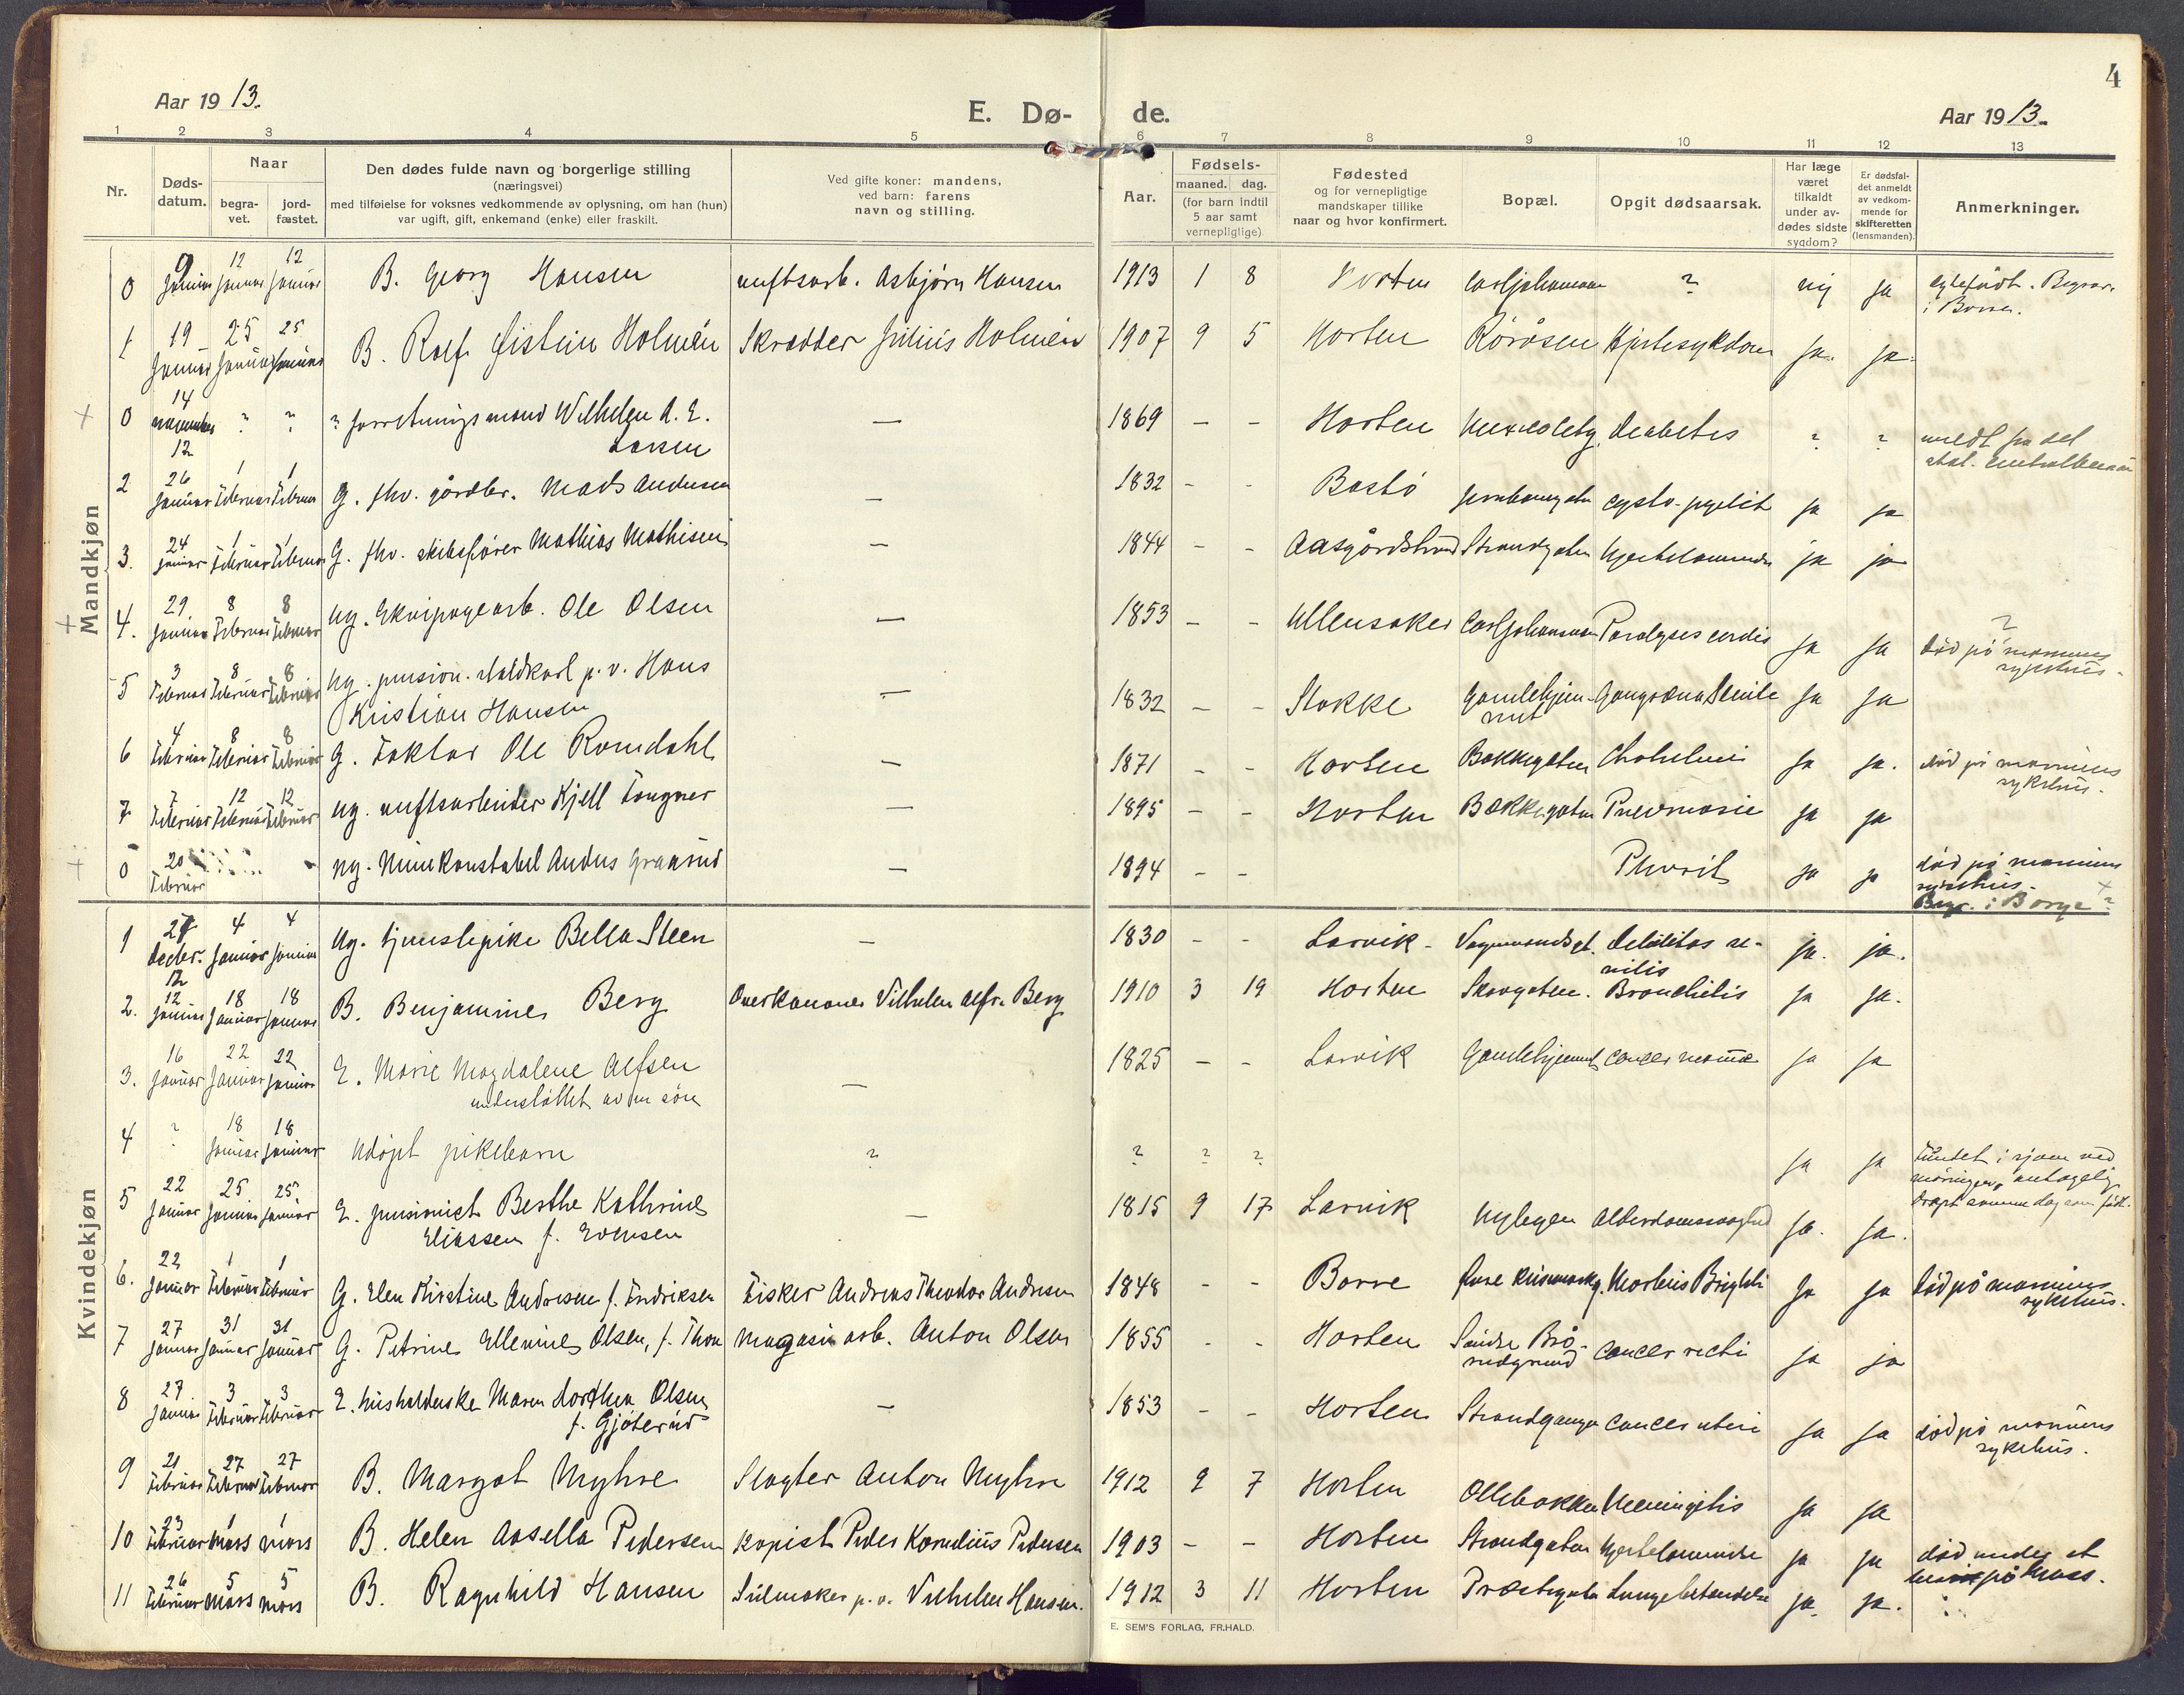 4
Aar 1913.
E. Dø- de.
Aar 1913.
1 2 3 4 5 6 7 8 9 10 11 12 13
Nr.
Døds-
datum.
Naar
begra-
vet.
jord-
fæstet.
Den dødes fulde navn og borgerlige stilling
(næringsvei)
med tilføielse for voksnes vedkommende av oplysning, om han (hun)
var ugift, gift, enkemand (enke) eller fraskilt.
Ved gifte koner: mandens,
ved barn: farens
navn og stilling.
Aar.
Fødsels-
maaned. dag.
(for barn indtil
5 aar samt
vernepligtige)
Fødested
og for vernepligtige
mandskaper tillike
naar og hvor konfirmert.
Bopæl.
Opgit dødsaarsak.
Har læge
været
tilkaldt
under av-
dødes sidste
sygdom?
Er dødsfal-
det anmeldt
av vedkom-
mende for
skifteretten
(lensmanden).
Anmerkninger.
Mandkjøn
0 9 Januar 12 Januar 12 Januar B. Georg Hansen Asbjørn Hansen 1913 1 8 Horten ? nei ja
i Borre.
1 19 Januar 25 Januar 25 Januar B. Rolf Øistein Holmén Skrædder Julius Holmén 1907 9 5 Horten Rørosen Hjertesykdom ja. ja.
0 14 november 12 ? ? ? forretningsmand Wilhelm A. E. Larsen — 1869 - - Horten Diabetes ? ? meldt fra det
stat.
2 26 Januar 1 Februar 1 Februar G. fhv. gårdbr. Mads Andersen — 1832 - - Bastö cysto-pyelit ja ja
3. 24 januar 1 Februar 1 Februar G. fhv. skibsfører Mathias Mathisen — 1844 - - Aasgårdstrand Strandgaten Hjertelammelse ja ja
4. 29 Januar 8 Februar 8 Februar ug. Ekvipagearb. Ole Olsen — 1853 - - Ullensaker Carljohansvern Paralyses cordis ja ja ?
död på marinens
sykehus.
5 3 Februar 8 Februar 8 Februar ug. pension. p.v. Hans
Kristian Hansen — 1832 - - Stokke Gamlehjem-
met Gangræna Senile ja ja
6 4 Februar 8 Februar 8 Februar G. Faktor Ole Romdahl — 1871 - - Horten Bakkegaten ja ja. död på marinens
sykehus.
7 7 Februar 12 Februar 12 Februar ug. verftsarbeider Kjell Tangner — 1895 - - Horten Bækkegaten Pnevmonie ja ja
0 20 Februar ug. Minekonstabel Anders Graarud — 1894 - - Plevrit ja ja död på marinens
sykehus.
Begr. i Borge ?
Kvindekjøn
1 27 decbr. 12 4 Januar 4 Januar Ug. tjenestepike Bella Steen — 1830 - - Larvik - Vognmandsgt. Debilitas se-
nilis ja. ja.
2. 12 Januar 18 Januar 18 Januar B. Benjamine Berg Overkanoner Vilhelm Alfr. Berg 1910 3 19 Horten Skovgaten. Bronchitis ja ja.
3. 16 Januar 22 Januar 22 Januar E. Marie Magdalene Alfsen
understöttet av en sön — 1825 - - Larvik Gamlehjemmet Cancer mamæ ja ja
4 ? 18 Januar 18 Januar Udöpt pikebarn ? ? ? ? ja ja Fundet i sjøen ved
antagelig
dræpt samme dag som födt.
5 22 Januar 25 Januar 25 Januar E. pensionist Berthe Kathrine
Eliassen f. Evensen — 1815 9 17 Larvik Nybyen Alderdomssvaghed ja. ja.
6. 22 Januar 1 Februar 1 Februar G. Elen Kirstine Andresen f. Fredriksen Fisker Andreas Theodor Andresen 1848 - - Borre Morbus Brightii ja ja död på marinens
sykehus.
7 27 Januar 31 Januar 31 Januar G. Petrine Ellevine Olsen, f. Thon Magasinarb. Anton Olsen 1855 - - Horten Søndre Bro-
rudgrund Cancer recti ja ja
8 27 Januar 3 Februar 3 Februar E. husholderske Maren Dorthea Olsen
f. Gjöterud — 1853 - - Horten Cancer uteri ja ja död på marinens
sykehus.
9 21 Februar 27 Februar 27 Februar B. Margot Myhre Slagter Anton Myhre 1912 9 7 Horten Ollebakken Meningitis ja ja
10 23 Februar 1 mars 1 mars B. Helen Aasella Pedersen Kopist Peder Kornelius Pedersen 1903 - - Horten Strandgaten Hjertelammelse ja ja död under et
på Moss.
11 26 Februar 5 mars 5 mars B. Ragnhild Hansen Seilmaker p.v. Vilhelm Hansen. 1912 3 11 Horten Præstegaten Lungebetændelse ja. ja.
E. SEM'S FORLAG, FR.HALD.